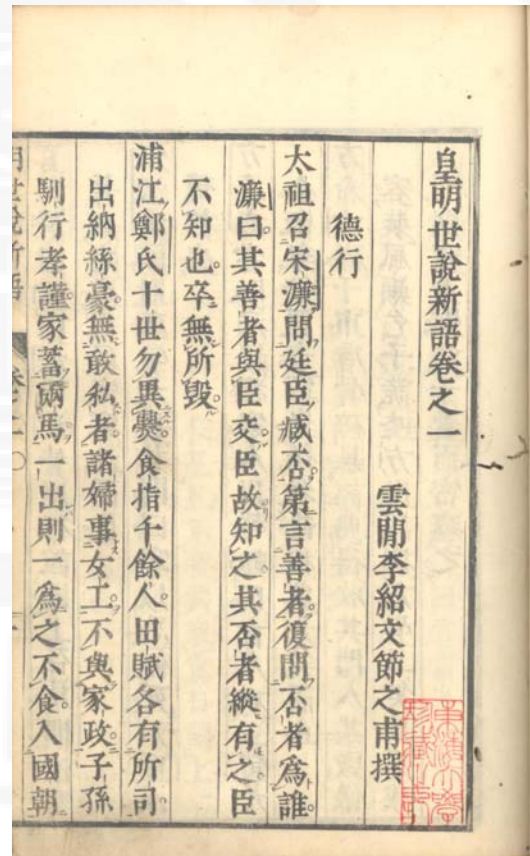 皇明世說新語卷之一
雲間李紹文節之甫撰
德行
太祖召宋濂問廷臣臧否第言善者復問否者爲誰
濂曰其善者與臣交臣故知之其否者縱有之臣
不知也卒無所毀
浦江鄭氏十世勿異爨食指千餘人田賦各有所司
出納絲毫無敢私者諸婦事女工不與家政子孫
馴行孝謹家蓄兩馬一出則一爲之不食入國朝